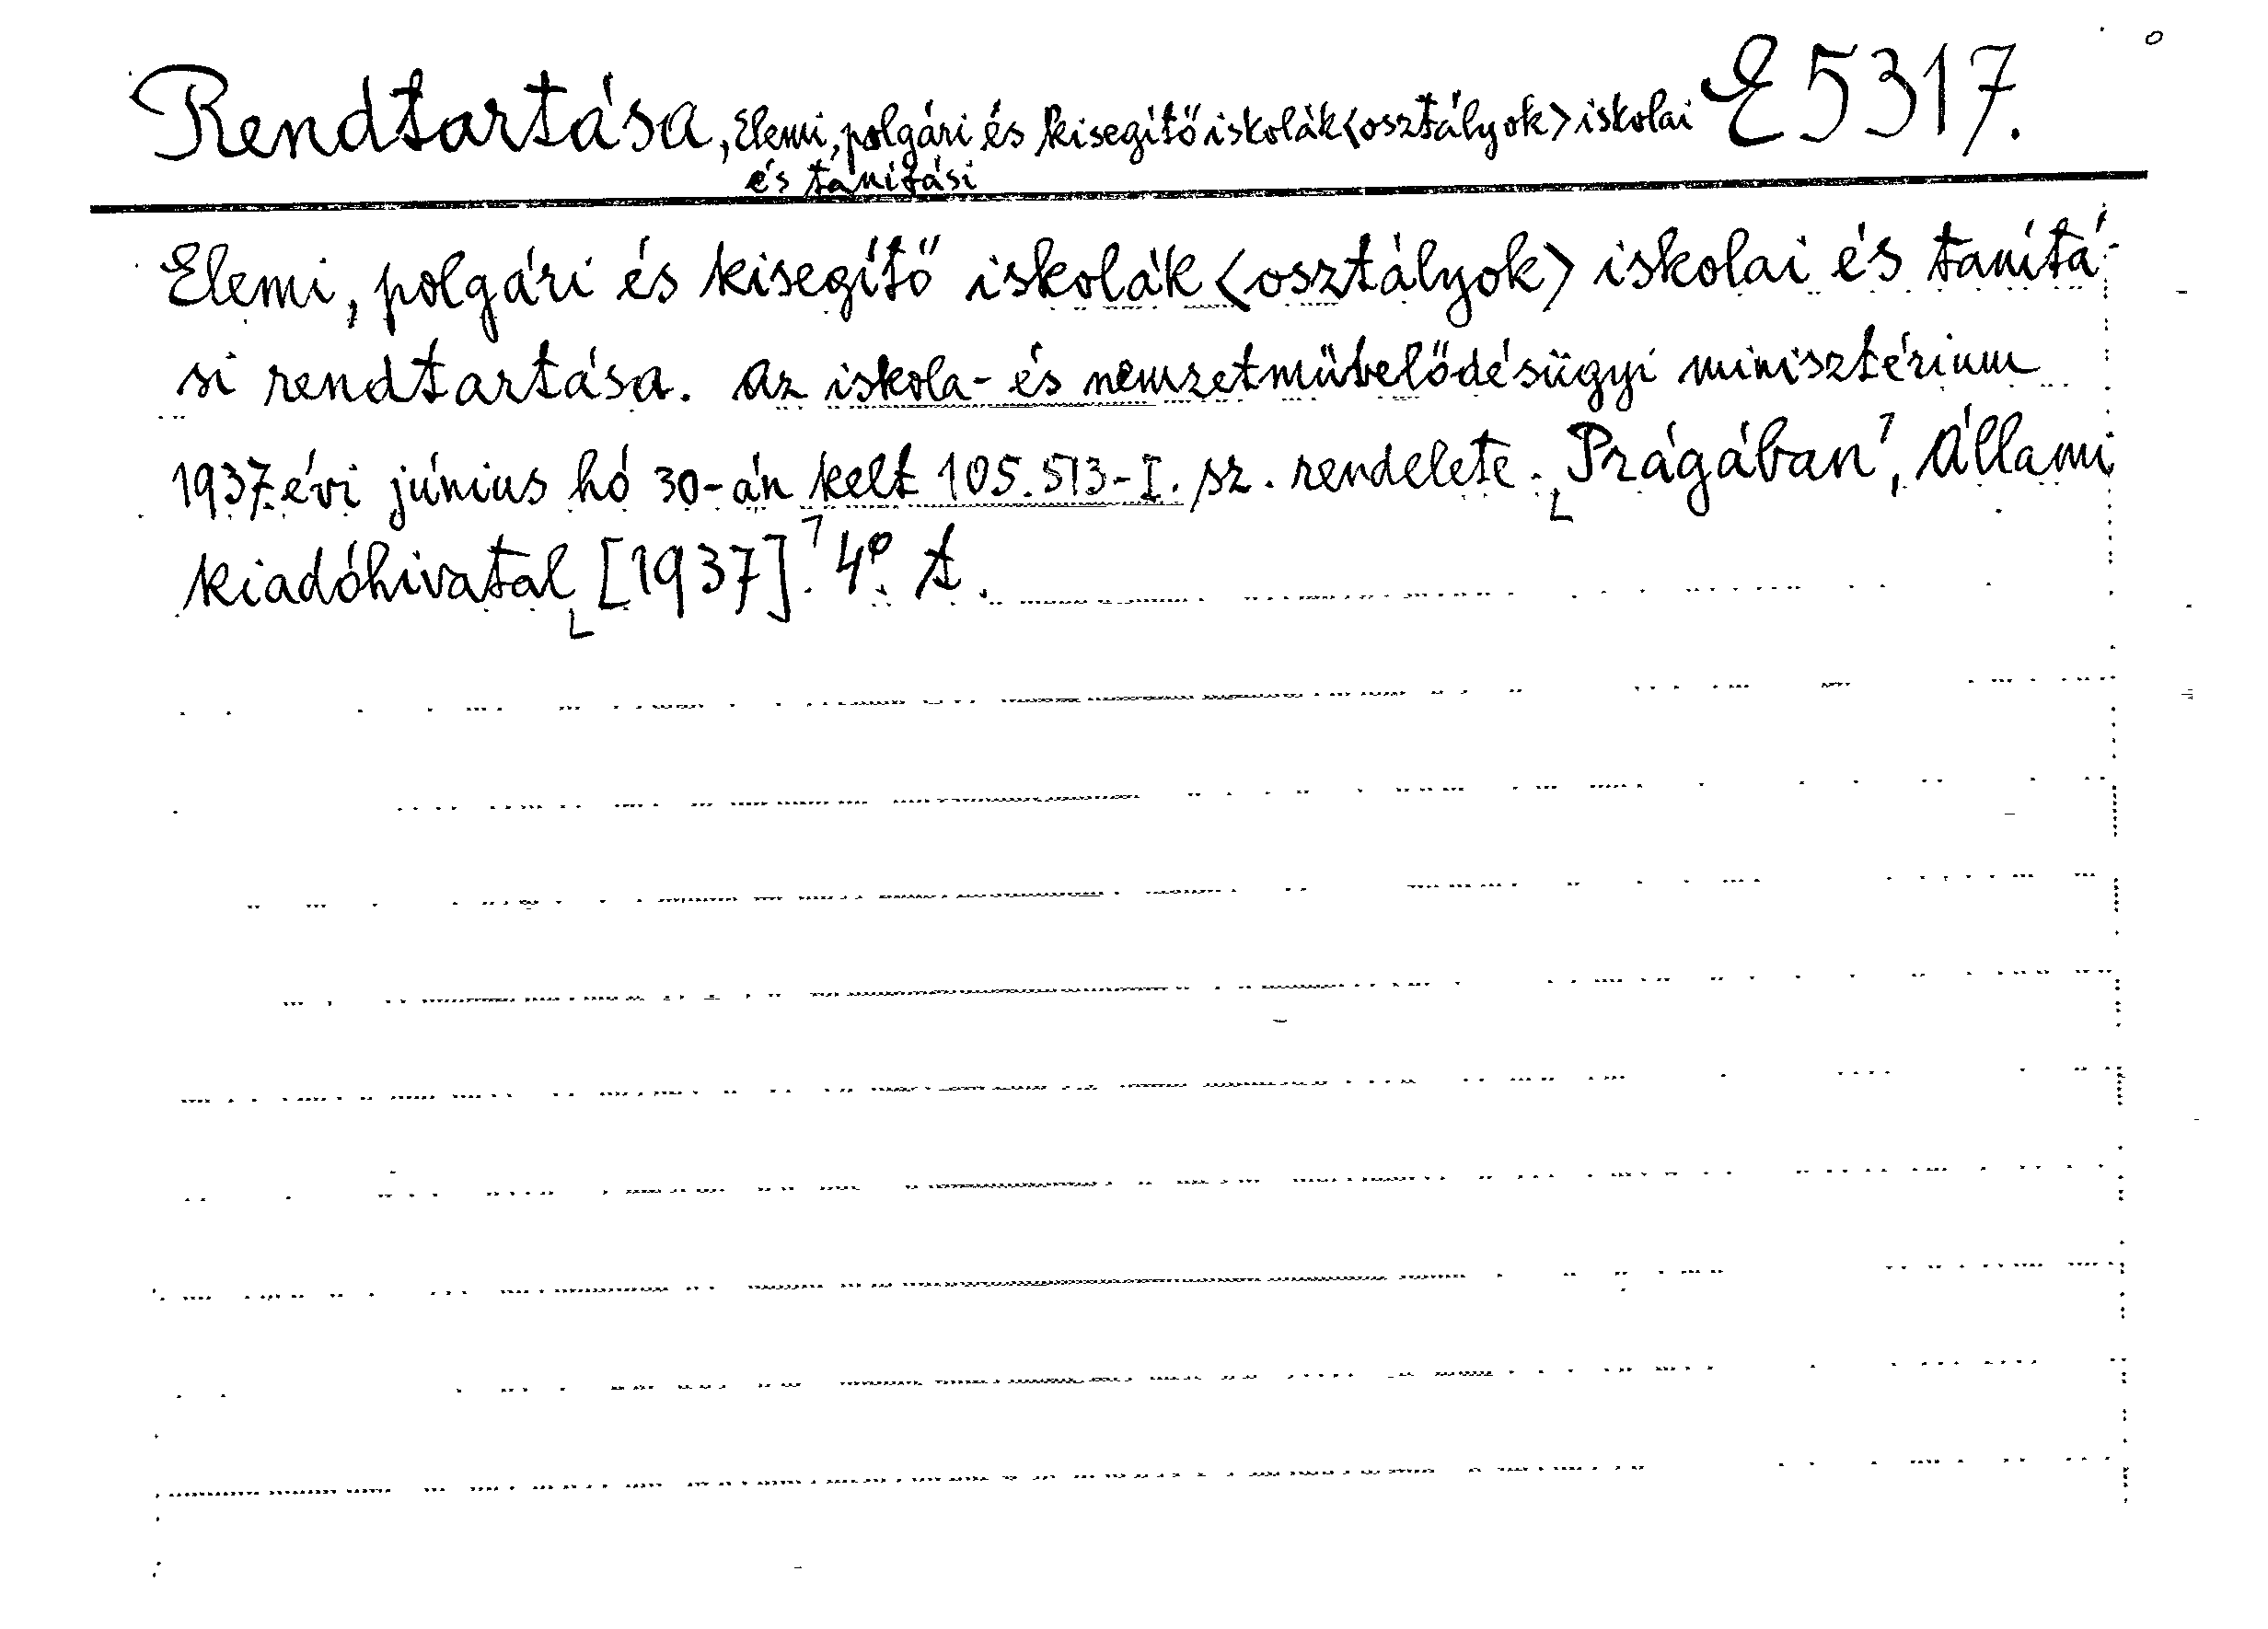 Rendtartása, Elemi, polgári és kisegítő iskolák <osztályok> iskolai E 5317.
és tanítási
Elemi, polgári és kisegítő iskolák <osztályok> iskolai és tanítá-
si rendtartása. Az iskola- és nemzetmüvelődésügyi minisztérium
1937. évi június hó 30-án kelt 105.513-I. sz. rendelete. ˻Prágában˺, Állami
kiadóhivatal ˻[1937].˺ 4° t.